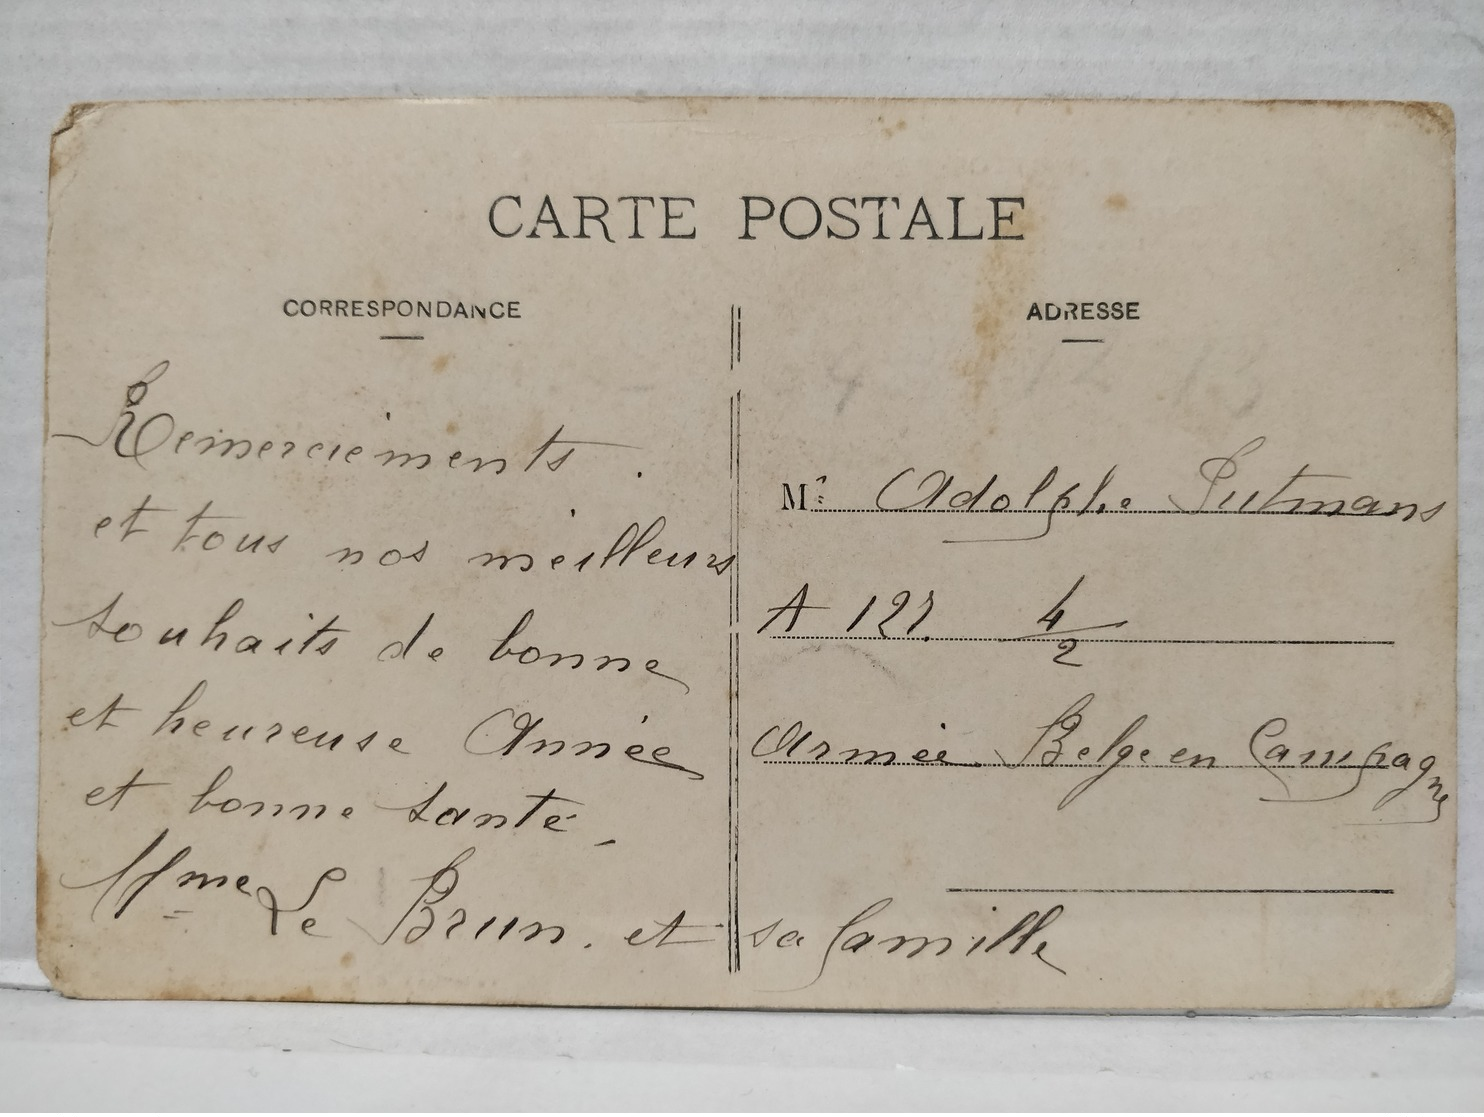 CARTE POSTALE
CORRESPONDANCE
ADRESSE
Remerciements.
et tous nos meilleurs
souhaits de bonne
et heureuse Année
et bonne santé
Mme Le Brun. et sa famille
M. Adolphe Putmans
A 127. 4/2
Armée Belge en Campagne